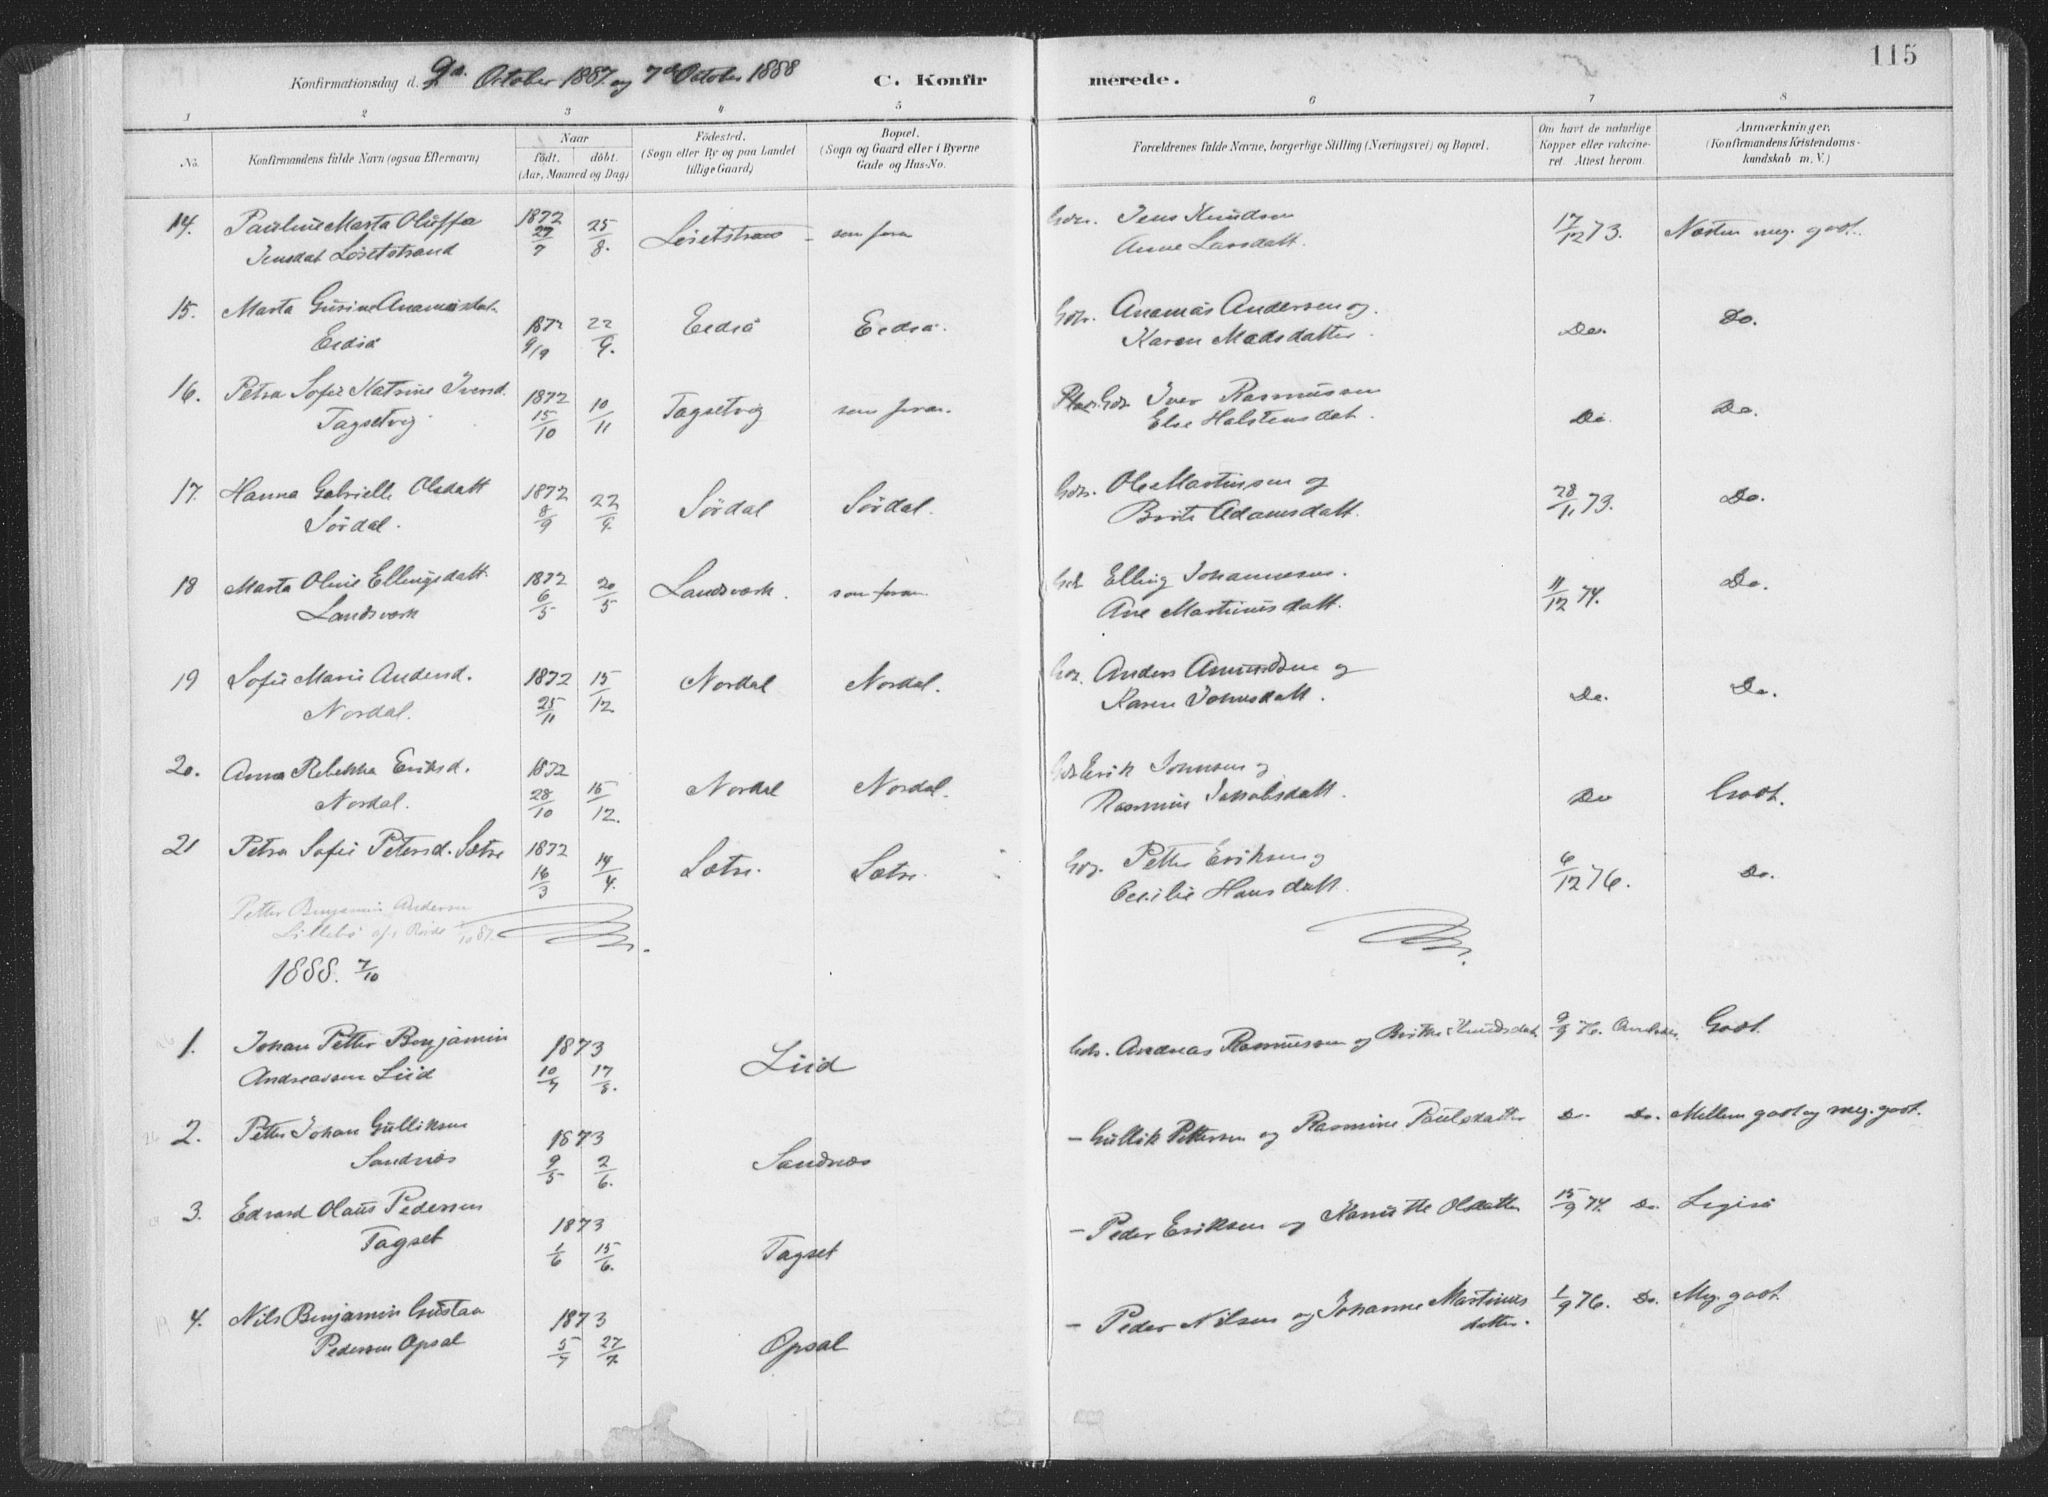 115
Konfirmationsdag d. 9de October 1887 og 7de October 1888 C. Konfirmerede.
1 2 3 4 5 6 7 8
No. Konfirmandens fulde Navn (ogsaa Efternavn) Naar født. døbt. (Aar, Maaned og Dag) Födested. (Sogn eller By og paa Landet tillige Gaard) Bopæl. (Sogn og Gaard eller i Byerne Gade og Hus-No. Forældrenes fulde Navne, borgerlige Stilling (Næringsvei) og Bopæl. Om havt de naturlige Kopper eller vakcineret. Attest herom. Anmærkninger. (Konfirmandens Kristendomskundskab m. V.)
14. Pauline Marta Oluffa 1872 27/7 25/8. Løsetstrand som foran Gdr. Jens Knudsen 17/12 73. Næsten meg. godt.
Jensdat Løsetstrand Anne Larsdatt.
15. Marta Gurine Ananiasdat. 1872 9/9 22/9. Eedsø Eedsø. Gdr. Ananias Andersen og Do. Do.
Eedsø Karen Madsdatter.
16. Petra Sofie Katrine Iversd. 1872 15/10 10/11 Tagsetvig som foran. Plads. Gdr. Iver Rasmussen Do. Do.
Tagsetvig Else Halstensdat.
17. Hanna Gabrielle Olsdatt 1872 8/9 22/9. Sørdal Sørdal. Gdr. Ole Martinsen og 28/11 73. Do.
Sørdal. Brite Adamsdatt.
18 Marta Oline Ellingsdatt. 1872 6/5 20/5 Landsværk. som foran Gdr Elling Johannesen. 11/12 74. Do.
Landsværk Ane Martinusdatt.
19 Sofie Marie Andersd. 1872 25/11 15/12 Nordal Nordal. Gdr. Anders Amundsen og Do. Do.
Nordal. Karen Johnsdatt.
20. Anna Rebekka Eriksd. 1872 28/10 15/12. Nordal Nordal. Gdr Erik Johnsen og Do Godt.
Nordal. Rasmine Jakobsdatt.
21 Petra Sofie Petersd. Sætre 1872 16/3 14/4. Sætre. Sætre. Gdr. Petter Eriksen og 6/12 76. Do.
Cecilie Hansdatt.
Petter Benjamin Andersen
Lillebø
1888. 7/10
1. Johan Petter Benjamin 1873 10/7 17/8. Liid Gdr. Andreas Rasmussen og Berthe Knudsdat. 9/9 76. Godt.
Andreassen Liid
2. Petter Johan Gulliksen 1873 9/5 2/6. Sandnæs — Gullik Pettersen og Rasmine Paulsdatter Do. Do. Mellem godt og meg. godt.
Sandnæs
3. Edvard Olaus Pedersen 1873 1/6 15/6. Tagset — Peder Eriksen og Olsdatter 15/9 74. Do.
Tagset
4. Nils Benjamin Gustav 1873 5/7 27/7 Opsal — Peder Nilsen og Johanne Martinus 1/9 76. Do. Meg. godt.
Pedersen Opsal datter.